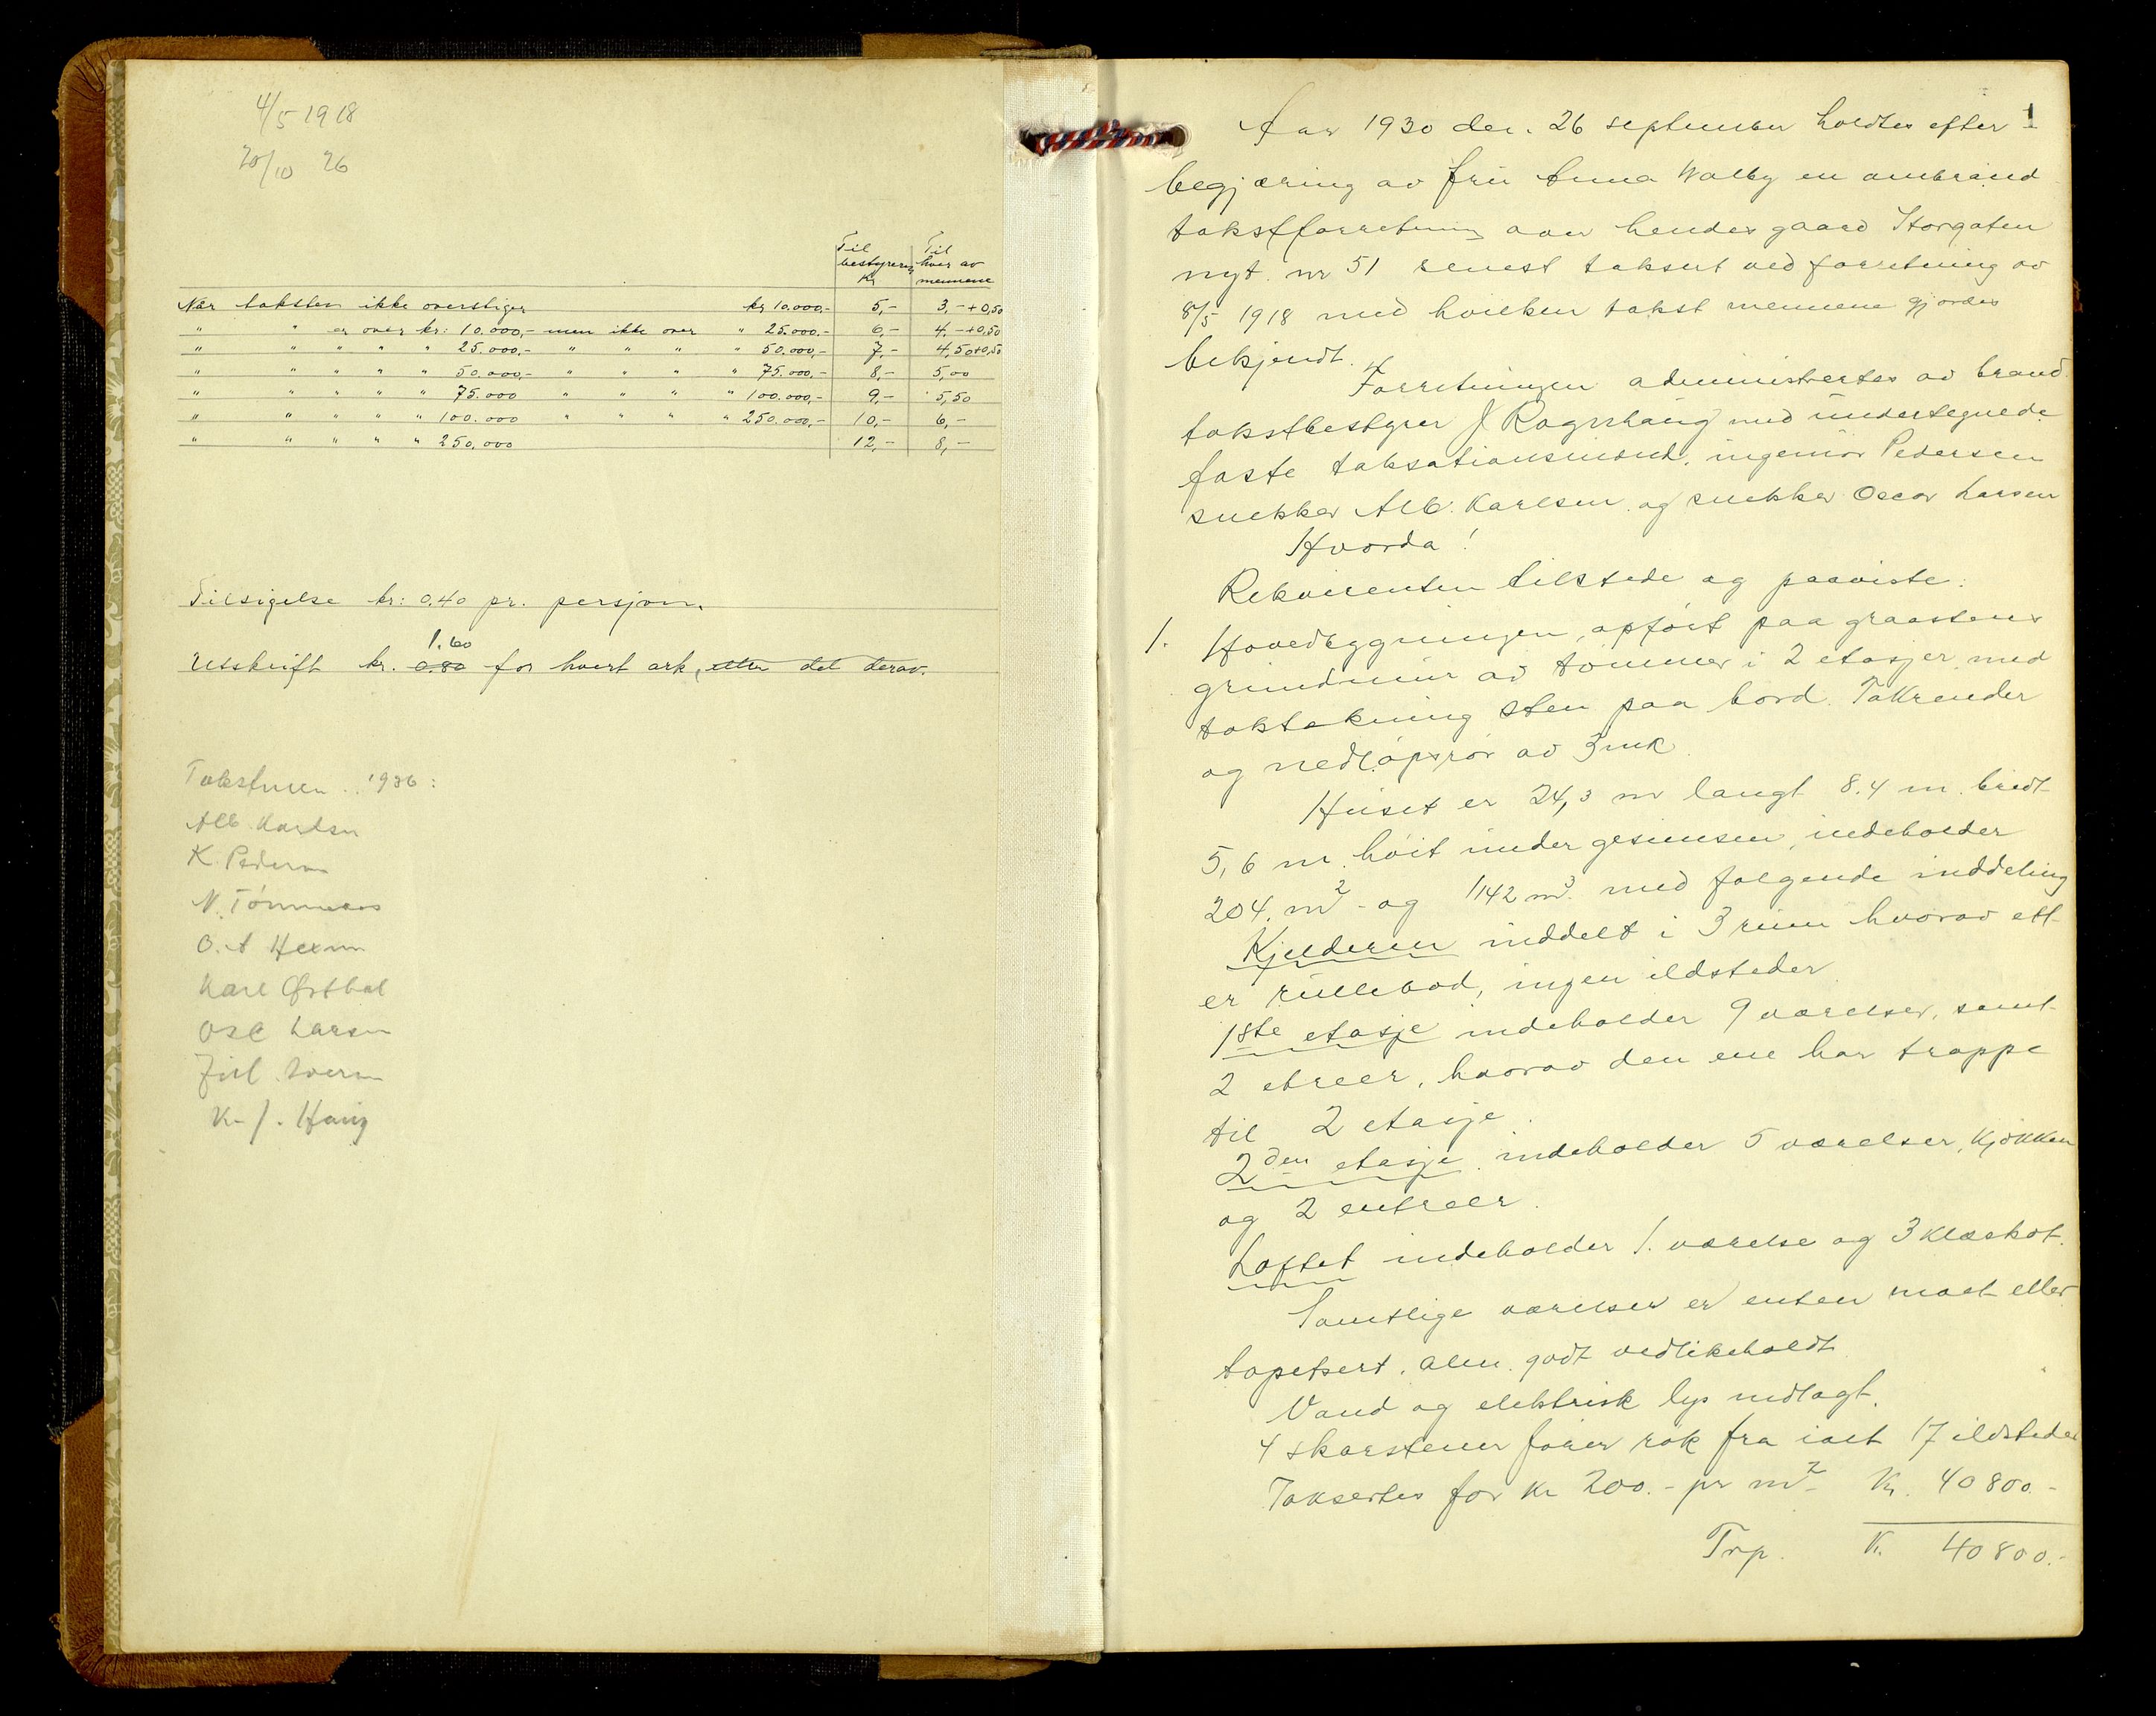 4/5 1918
20/10 26
Til bestyreren Kr
Til hver av mennene
Når taksten ikke overstiger kr 10.000,- 5,- 3,-+0,50
" " er over kr: 10.000,- men ikke over " 25.000.- 6,- 4,-+0,50
" " " " " 25.000,- " " " " 50.000,- 7,- 4,50+0,50
" " " " " 50.000,- " " " " 75.000,- 8,- 5,00
" " " " " 75.000 " " " " 100.000,- 9,- 5,50
" " " " " 100.000 " " " " 250.000,- 10,- 6,-
" " " " " 250.000 12,- 8,-
Tilsigelse kr: 0.40 pr. persjon.
1.60
Utskrift kr. 0.80 for hvert ark, eller del derav.
Takstmen .. 1936:
Alb. Karlsen
K. Pedersen
N. Tømmeraas
O. A
Karl Østbal
Osc Larsen
K. J. Haug
1
Aar 1930 den. 26 september holdtes efter
begjæring av fru Anna Walby en ombrand
takstforretning over hendes gaard Storgaten
nyt. nr 51 senest taksert ved forretning av
8/5 1918 med hvilken takst mennene gjordes
bekjendt.
Forretningen administrertes av brand
takstbestyrer J Rognhaug med undertegnede
faste taksationsmænd, ingeniør Pedersen
snekker Alb. Karlsen og snekker Oscar Larsen
Hvorda!
Rekvirenten tilstede og paaviste:
1. Hovedbygningen, opført paa graastens
grundmur av tømmer i 2 etasjer med
taktekning sten paa bord. Takrender
og nedløpsrør av zink.
Huset er 24,3 m langt 8.4 m. bredt
5,6 m. høit under gesimsen, indeholder
204. m² - og 1142 m³. med følgende inddeling
Kjelderen inddelt i 3 rum hvorav ett
er rullebod, ingen ildsteder.
1ste etasje indeholder 9 værelser, samt
2 etreer, hvorav den ene har trappe
til 2 etasje.
2den etasje indeholder 5 værelser, kjøkken
og 2 entreer.
Loftet indeholder 1. værelse og 3 klæskot.
Samtlige værelser er enten malt eller
tapetsert. alm. godt vedlikeholdt.
Vand og elektrisk lys indlagt.
4 skorstener fører røk fra ialt 17 ildsteder
Taksertes for kr 200.- pr m² - Kr. 40800.-
Trp. K. 40800.-